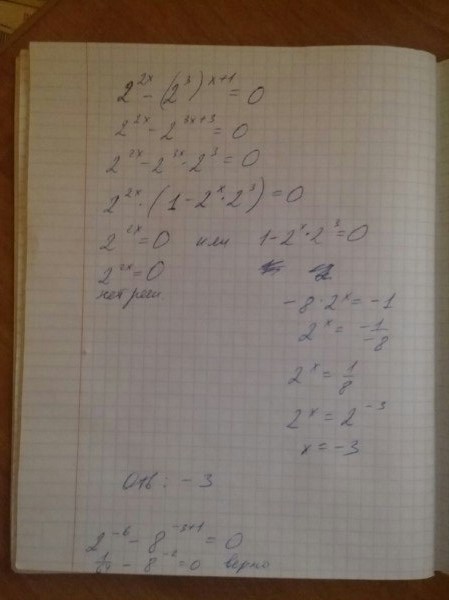 2^{2x} - (2^3)^{x+1} = 0
2^{2x} - 2^{3x+3} = 0
2^{2x} - 2^{3x} · 2^3 = 0
2^{2x} · (1 - 2^x · 2^3) = 0
2^{2x} = 0 или 1 - 2^x · 2^3 = 0
2^{2x} = 0
нет реш.
-8 · 2^x = -1
2^x = \frac{-1}{-8}
2^x = \frac{1}{8}
2^x = 2^{-3}
x = -3
Отв: -3
2^{-6} - 8^{-3+1} = 0
\frac{1}{64} - 8^{-2} = 0 верно